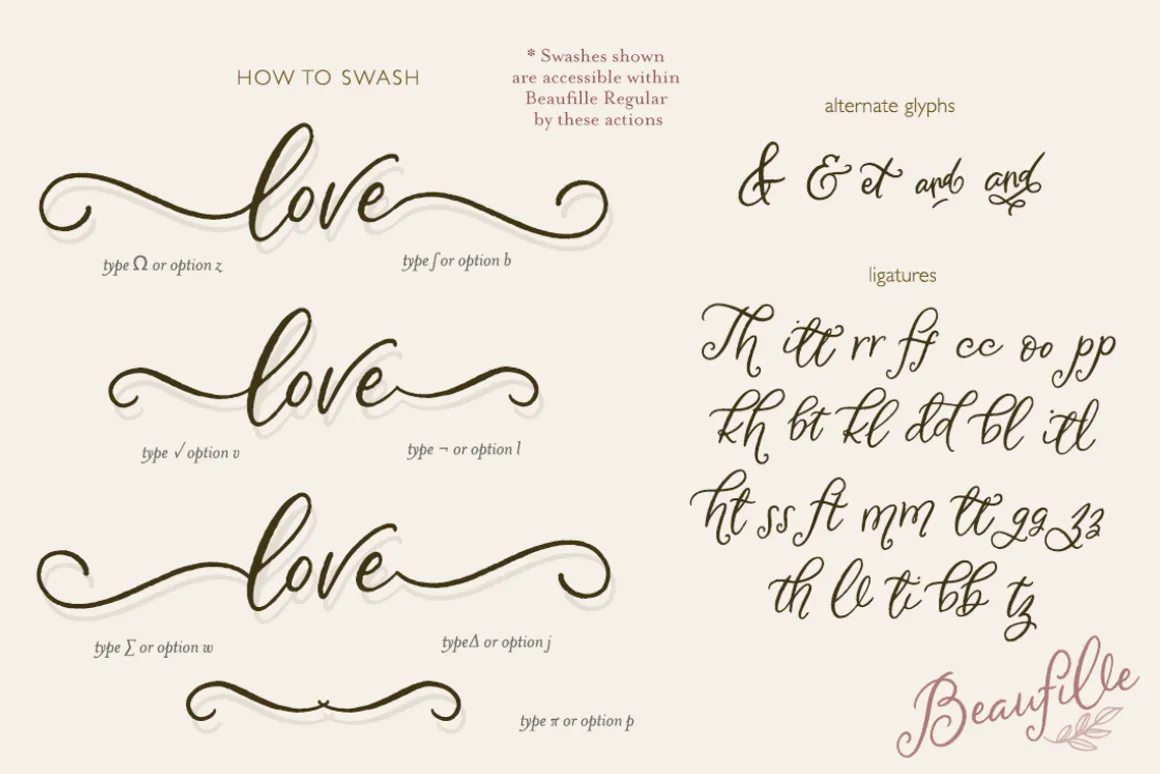 HOW TO SWASH
* Swashes shown
are accessible within
Beaufille Regular
by these actions
love
type Ω or option z
type ∫ or option b
love
type √ option v
type ¬ or option l
love
type ∑ or option w
type∆ or option j
type π or option p
alternate glyphs
& & et and and
ligatures
Th itt rr ff cc oo pp
kh bt kl dd bl itl
ht ss ft mm tt gg zz
th ll ti bb tz
Beaufille